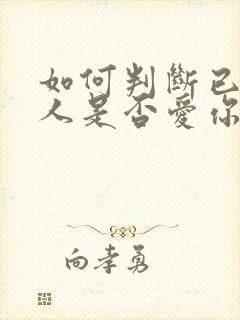 如何判斷已
人是否愛你
向孝勇